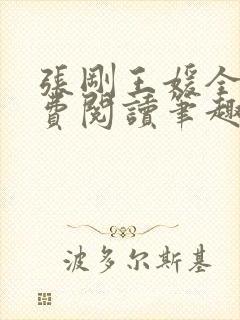 張剛王媛全
費閱讀筆趣
波多尔斯基